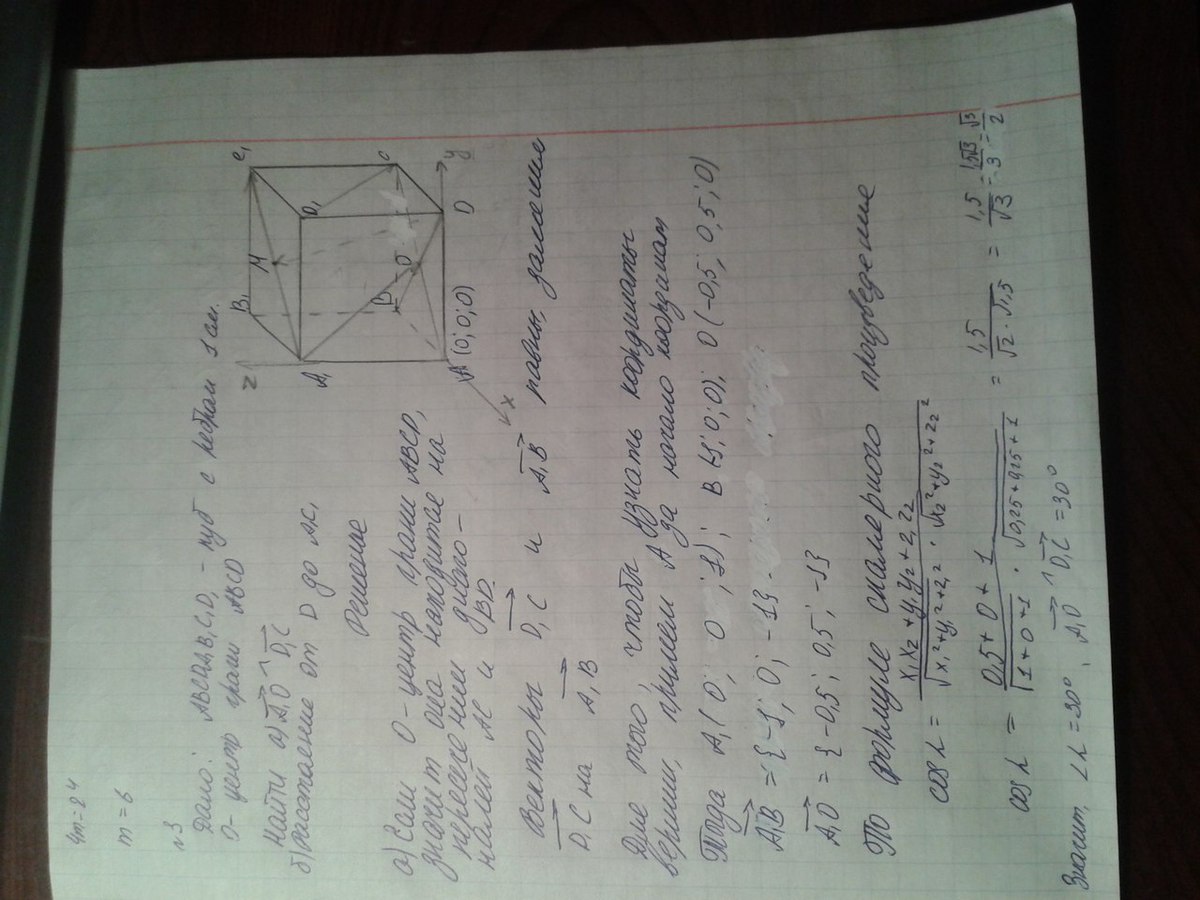 4m=24
m=6
№3
Дано: ABCDA₁B₁C₁D₁ - куб с ребром 1 см.
O- центр грани ABCD
Найти а) A₁O ^ D₁C
б) Расстояние от D до AC₁
Решение
а) Если O-центр грани ABCD,
значит она находится на
пересечение диаго-
налей AC и BD.
Z
B₁
C₁
M
A₁
D₁
B
O
C
A (0; 0; 0)
D
y
x
Векторы D₁C и A₁B равны, заменим
D₁C на A₁B
Для того, чтобы узнать координаты
вершин, примем A за начало координат
Тогда A₁(0; 0; 1); B(-1; 0; 0); O(-0,5; 0,5; 0)
A₁B = {-1; 0; -1}
A₁O = {-0,5; 0,5; -1}
По формуле скалярного произведение
cos α = x₁x₂+y₁y₂+z₁z₂ / √x₁²+y₁²+z₁² · √x₂²+y₂²+z₂²
cos α = 0,5+0+1 / √1+0+1 · √0,25+0,25+1 = 1,5 / √2·√1,5 = 1,5 / √3 = 1,5√3 / 3 = √3 / 2
Значит, ∠α=30°, A₁O ^ D₁C =30°